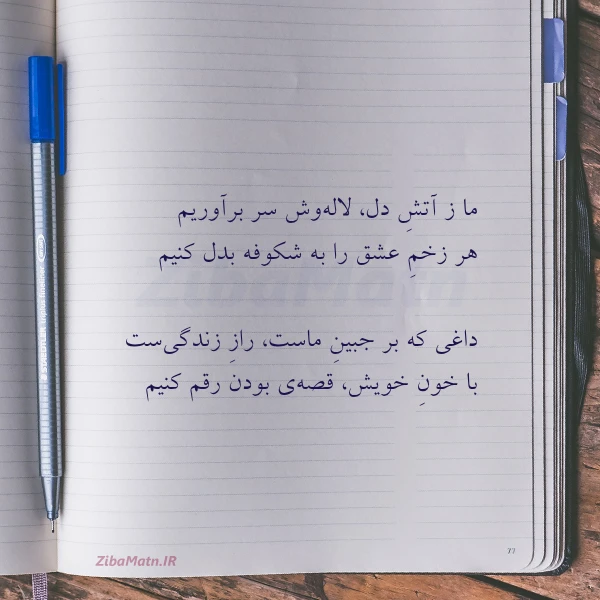 ما ز آتشِ دل، لاله‌وش سر برآوریم
هر زخمِ عشق را به شکوفه بدل کنیم
داغی که بر جبینِ ماست، رازِ زندگی‌ست
با خونِ خویش، قصه‌ی بودن رقم کنیم
ZibaMatn.IR